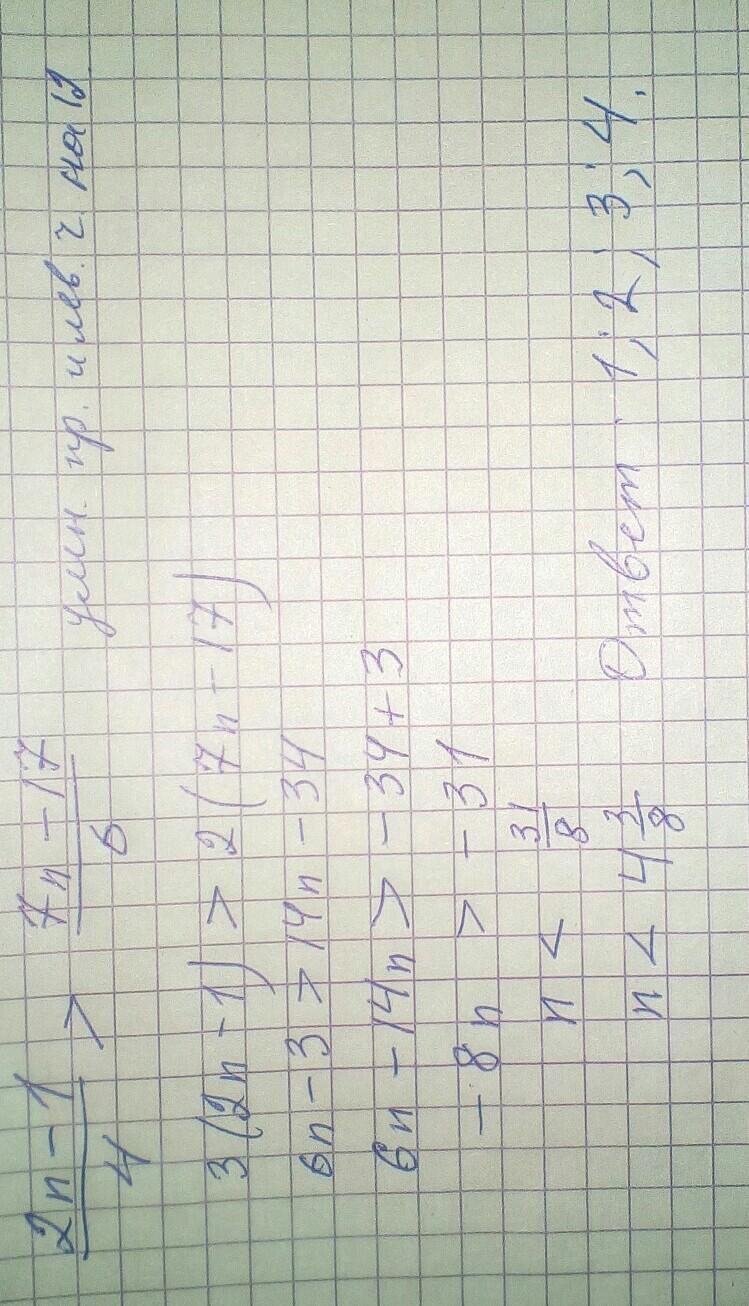 2n-1/4 > 7n-17/6 умн. пр. и лев. ч. на 12.
3(2n-1) > 2(7n-17)
6n-3 > 14n-34
6n-14n > -34+3
-8n > -31
n < 31/8
n < 4 3/8 Ответ 1; 2; 3; 4.